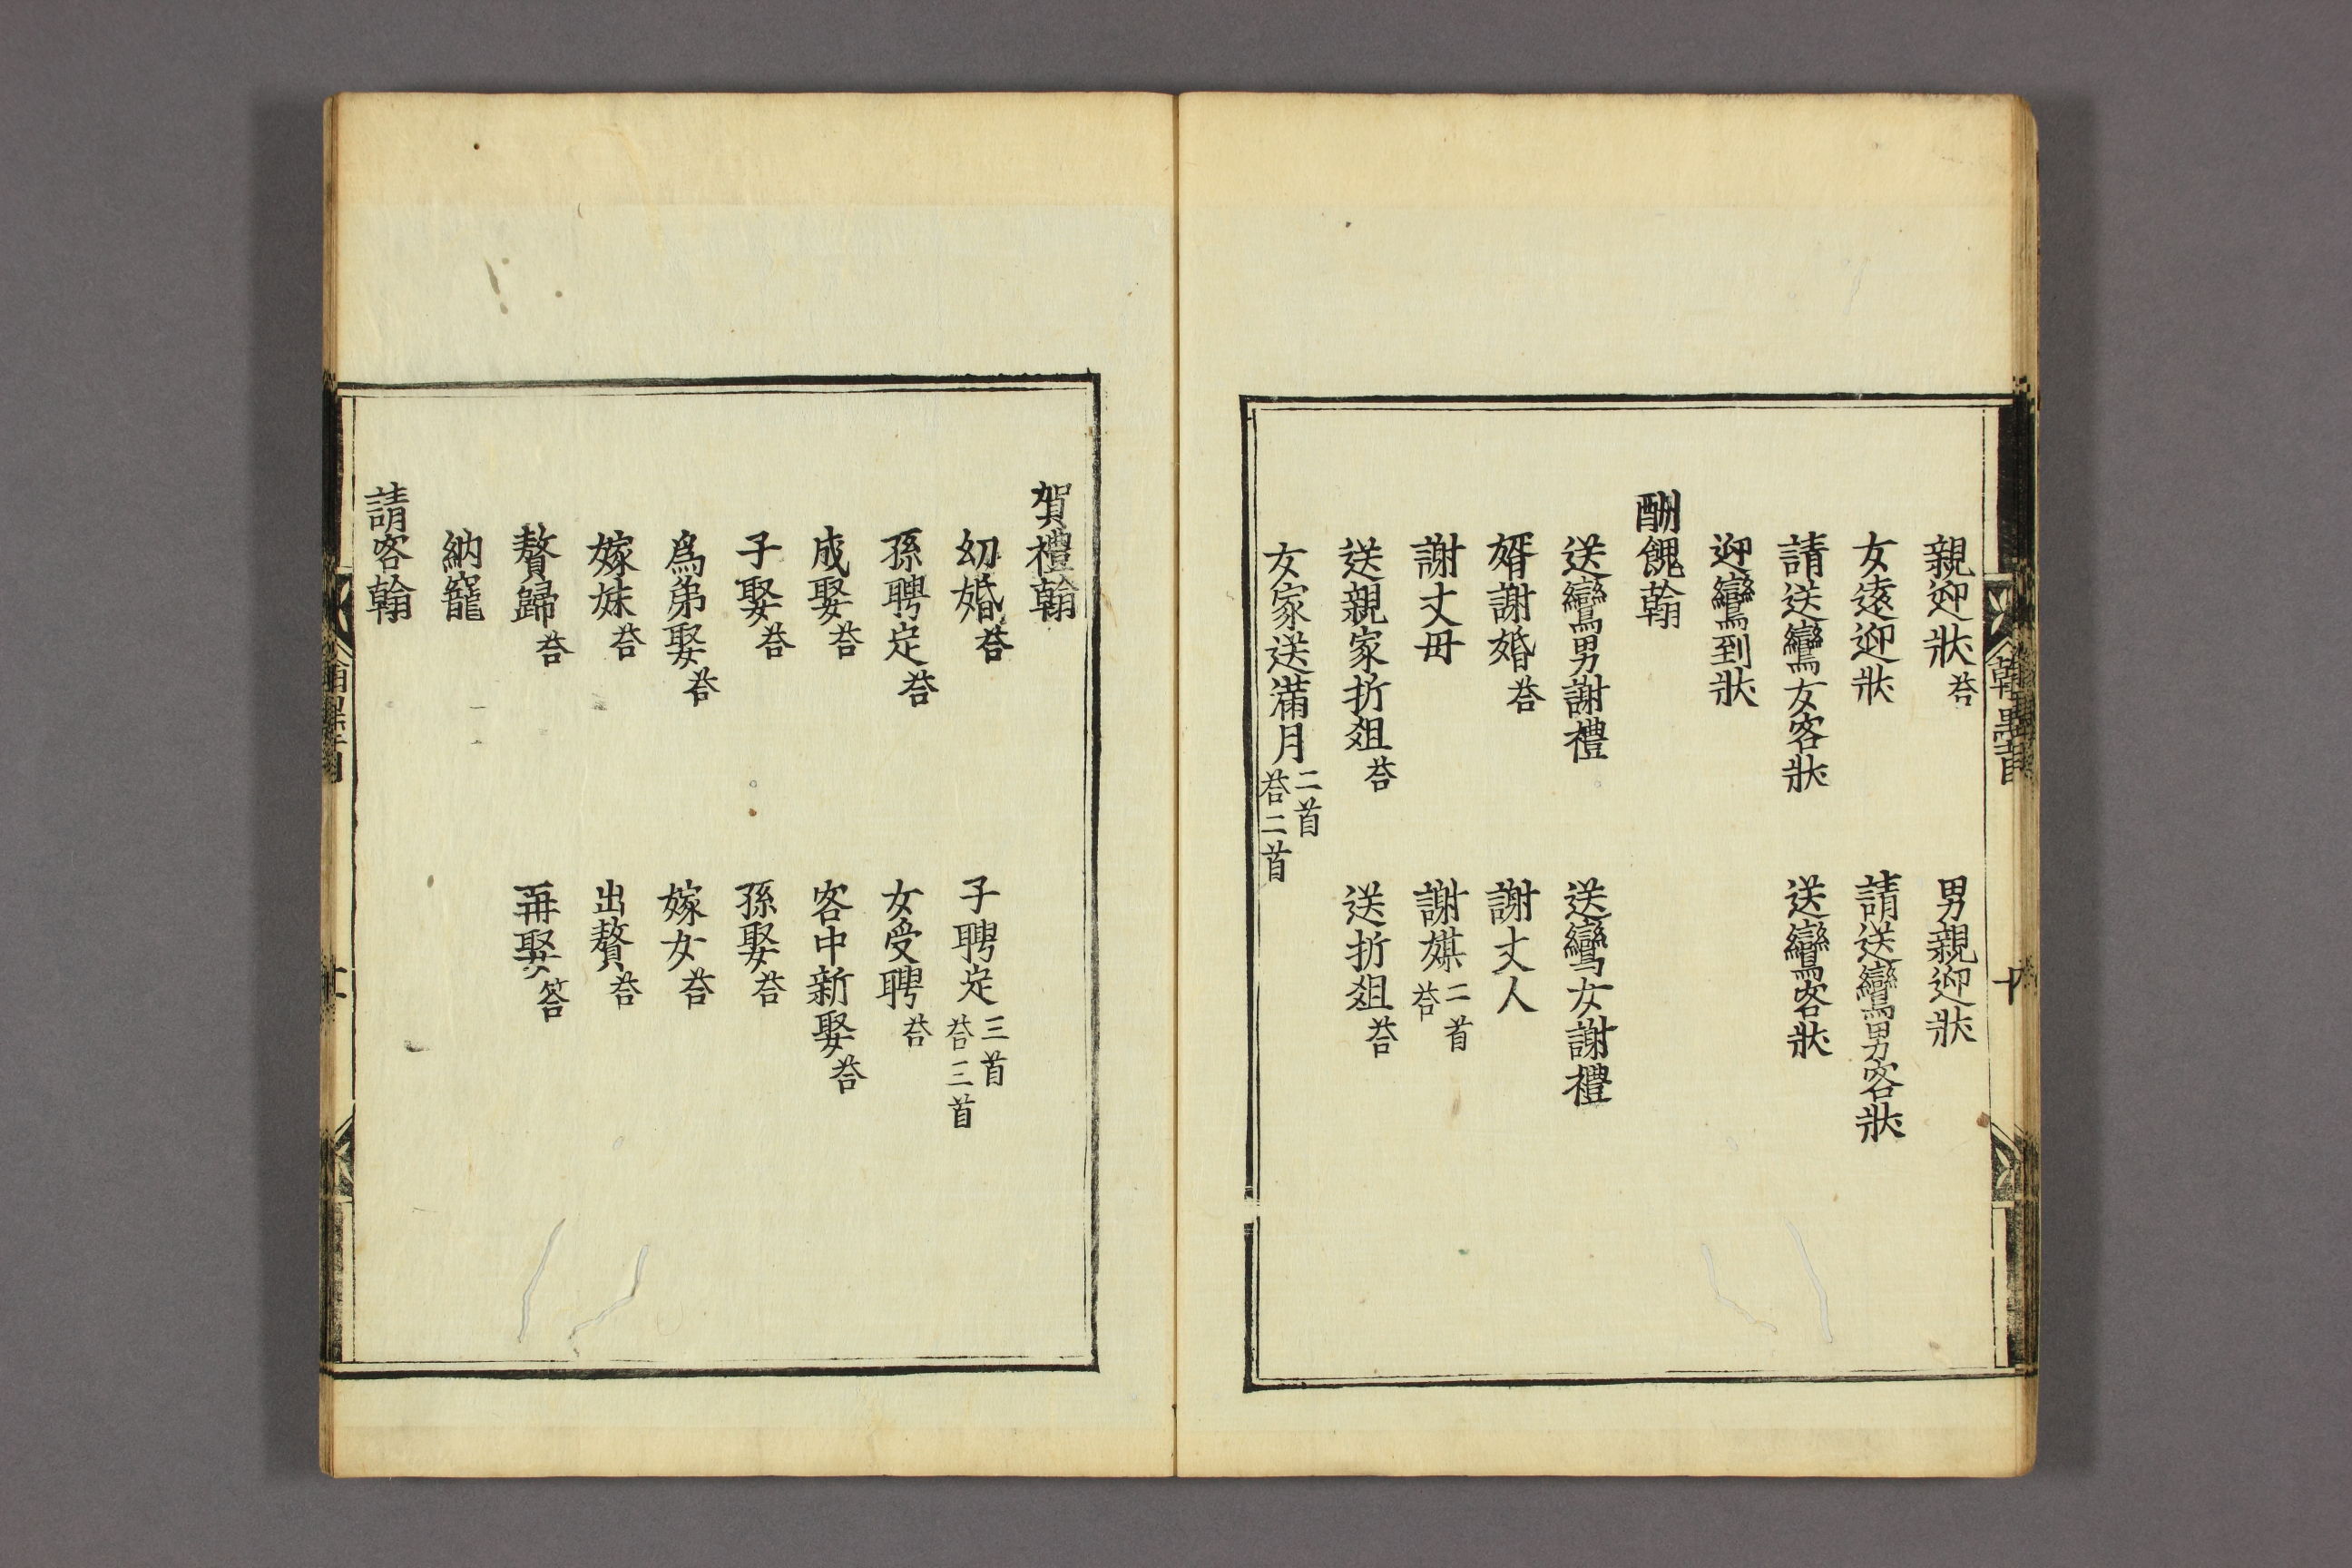 親迎狀荅　男親迎狀
女遠迎狀　請送鸞男客狀
請送鸞女客狀　送鸞客狀
迎鸞到狀
酬餽翰
送鸞男謝禮　送鸞女謝禮
婿謝婚荅　謝丈人
謝丈母　謝媒二首荅
送親家折俎荅　送折俎荅
女家送滿月二首荅二首
賀禮翰
幼婚荅　子聘定三首荅三首
孫聘定荅　女受聘荅
成娶荅　客中新娶荅
子娶荅　孫娶荅
爲弟娶荅　嫁女荅
嫁妹荅　出贅荅
贅歸荅　再娶答
納寵
請客翰